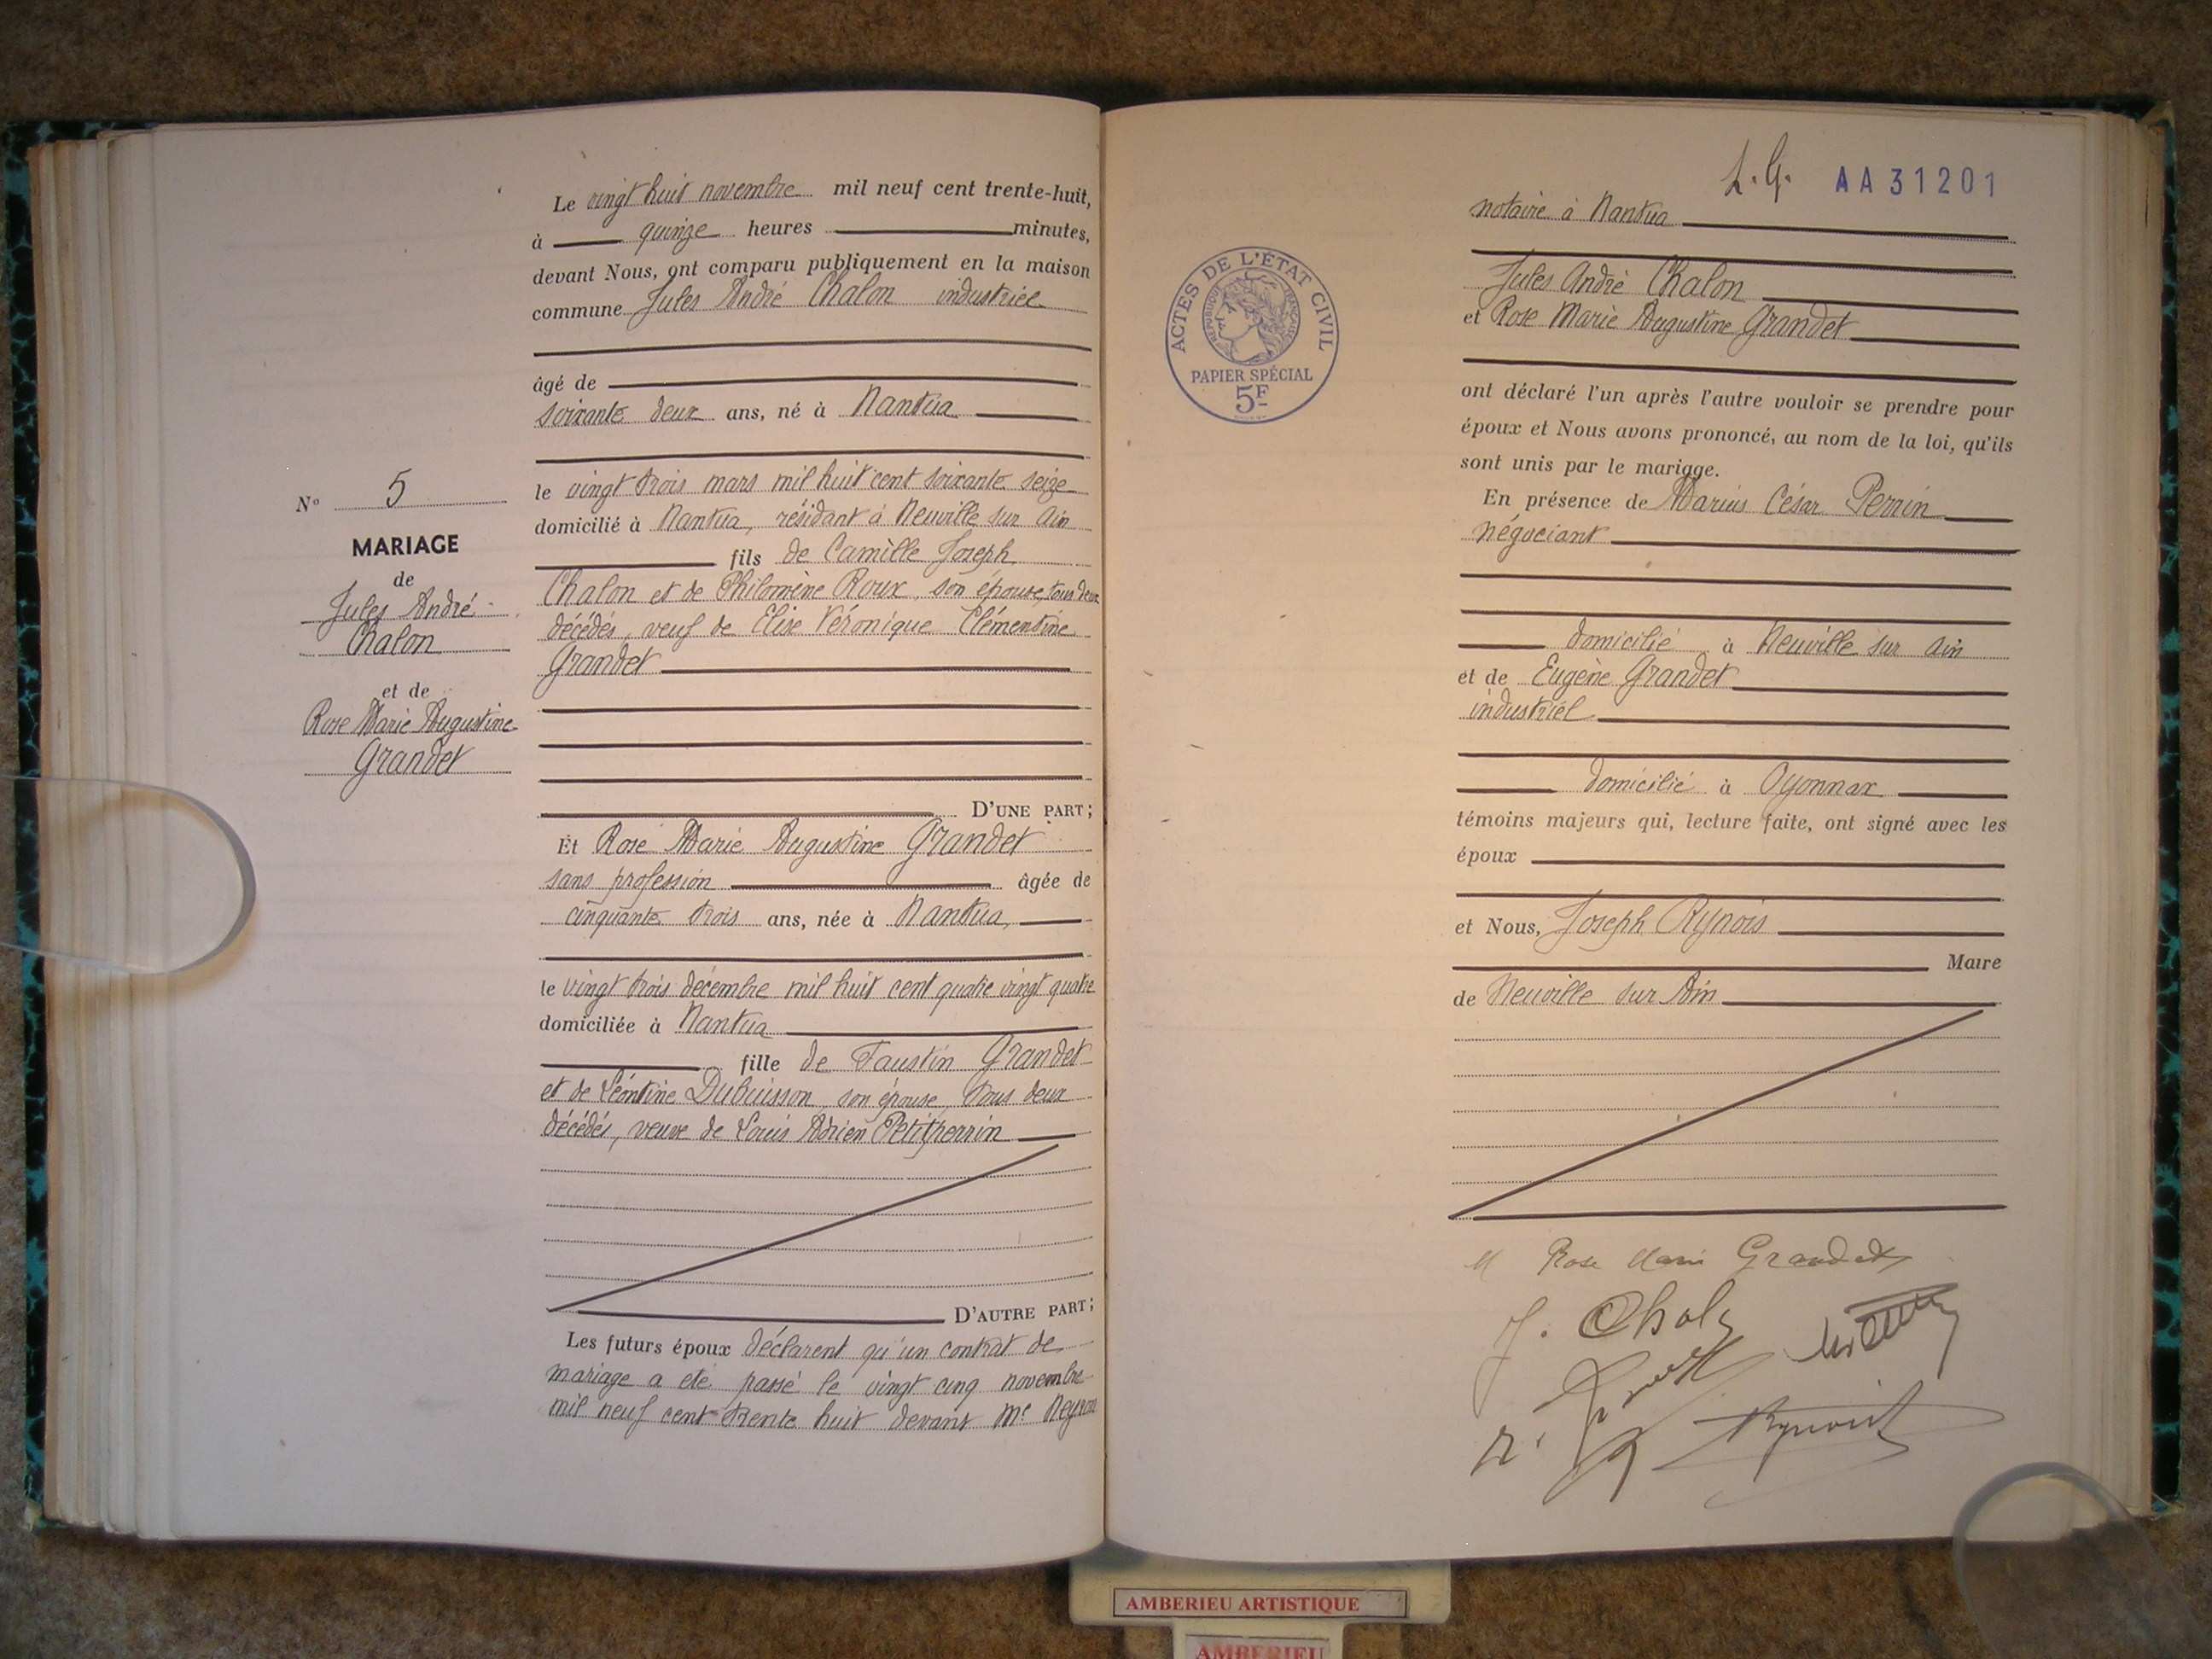 Le vingt huit novembre mil neuf cent trente-huit,
à quinze heures minutes,
devant Nous, ont comparu publiquement en la maison
commune Jules André Chalon industriel
âgé de
soixante deux ans, né à Nantua
le vingt trois mars mil huit cent soixante seize
domicilié à Nantua, résidant à Neuville sur Ain
fils de Camille Joseph
Chalon et de Philomène Roux, son épouse, tous deux
décédés, veuf de Elise Véronique Clémentine
Grandet
D'UNE PART;
N° 5
MARIAGE
de
Jules André
Chalon
et de
Rose Marie Augustine
Grandet
Et Rose Marie Augustine Grandet
sans profession âgée de
cinquante trois ans, née à Nantua,
le vingt trois décembre mil huit cent quatre vingt quatre
domiciliée à Nantua
fille de Faustin Grandet
et de Léontine Dubuisson, son épouse, tous deux
décédés, veuve de Louis Adrien Petitperrin
D'AUTRE PART;
Les futurs époux déclarent qu'un contrat de
mariage a été passé le vingt cinq novembre
mil neuf cent trente huit devant Me
L. G. AA31201
notaire à Nantua
ACTES DE L'ÉTAT CIVIL
RÉPUBLIQUE FRANÇAISE
PAPIER SPÉCIAL
5F
Jules André Chalon
et Rose Marie Augustine Grandet
ont déclaré l'un après l'autre vouloir se prendre pour
époux et Nous avons prononcé, au nom de la loi, qu'ils
sont unis par le mariage.
En présence de Marius César Perrin
négociant
domicilié à Neuville sur Ain
et de Eugène Grandet
industriel
domicilié à Oyonnax
témoins majeurs qui, lecture faite, ont signé avec les
époux
et Nous, Joseph Rynois
Maire
de Neuville sur Ain
M Rose Marie Grandet
J. Chalon
AMBERIEU ARTISTIQUE
AMBERIEU